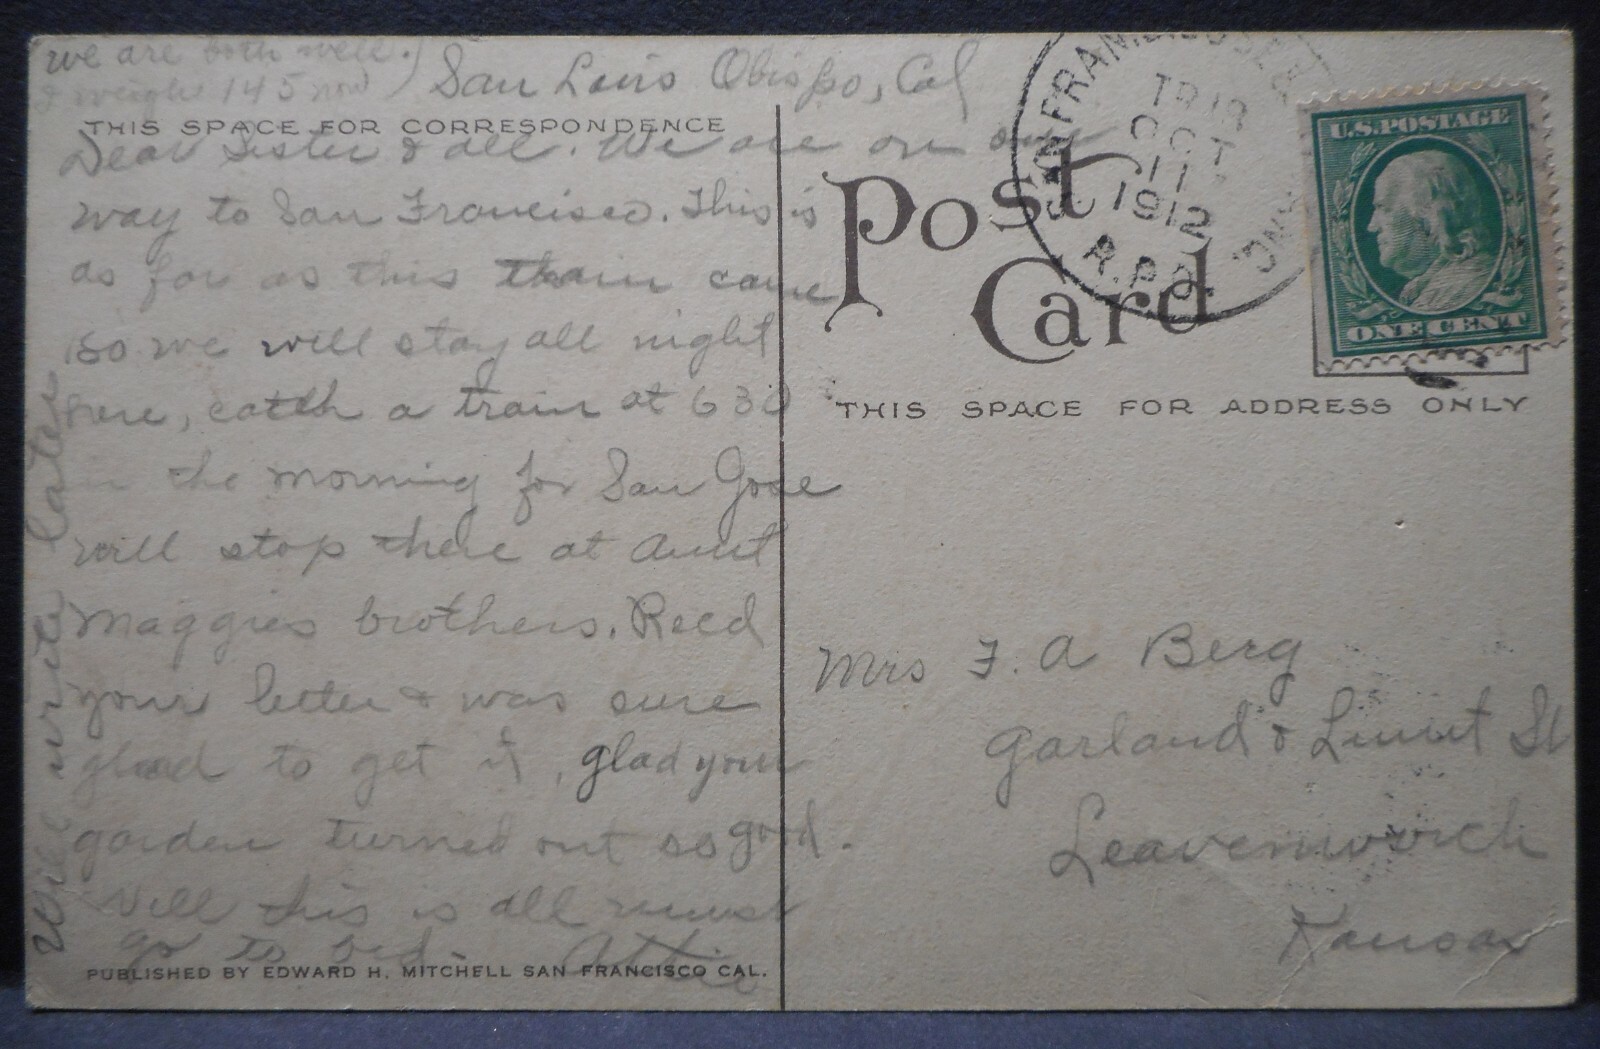 we are both well.
I weigh 145 now
San Louis Obispo, Cal
THIS SPACE FOR CORRESPONDENCE
Dear Sister & all. We are on our
way to San Francisco. This is
as far as this train came
so we will stay all night
here, catch a train at 630
in the morning for San Gose
will stop there at Aunt
Maggies brothers. Recd
your letter & was sure
glad to get it, glad your
garden turned out so good.
Well this is all must
go to bed. Attie
Will write later
PUBLISHED BY EDWARD H. MITCHELL SAN FRANCISCO CAL.
Post
Card
TR 18
OCT
11
1912
R.P.O.
U.S. POSTAGE
ONE CENT
THIS SPACE FOR ADDRESS ONLY
Mrs F. A Berg
Garland & St
Leavenworth
Kansas